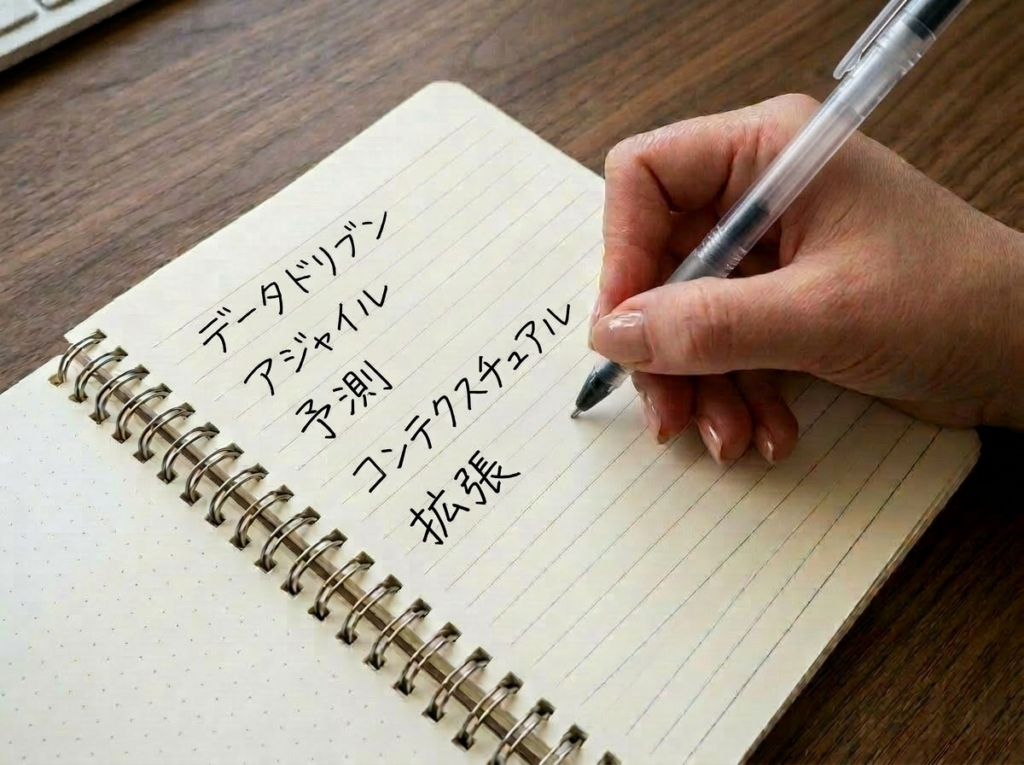 データドリブン
アジャイル
予測
コンテクスチュアル
拡張